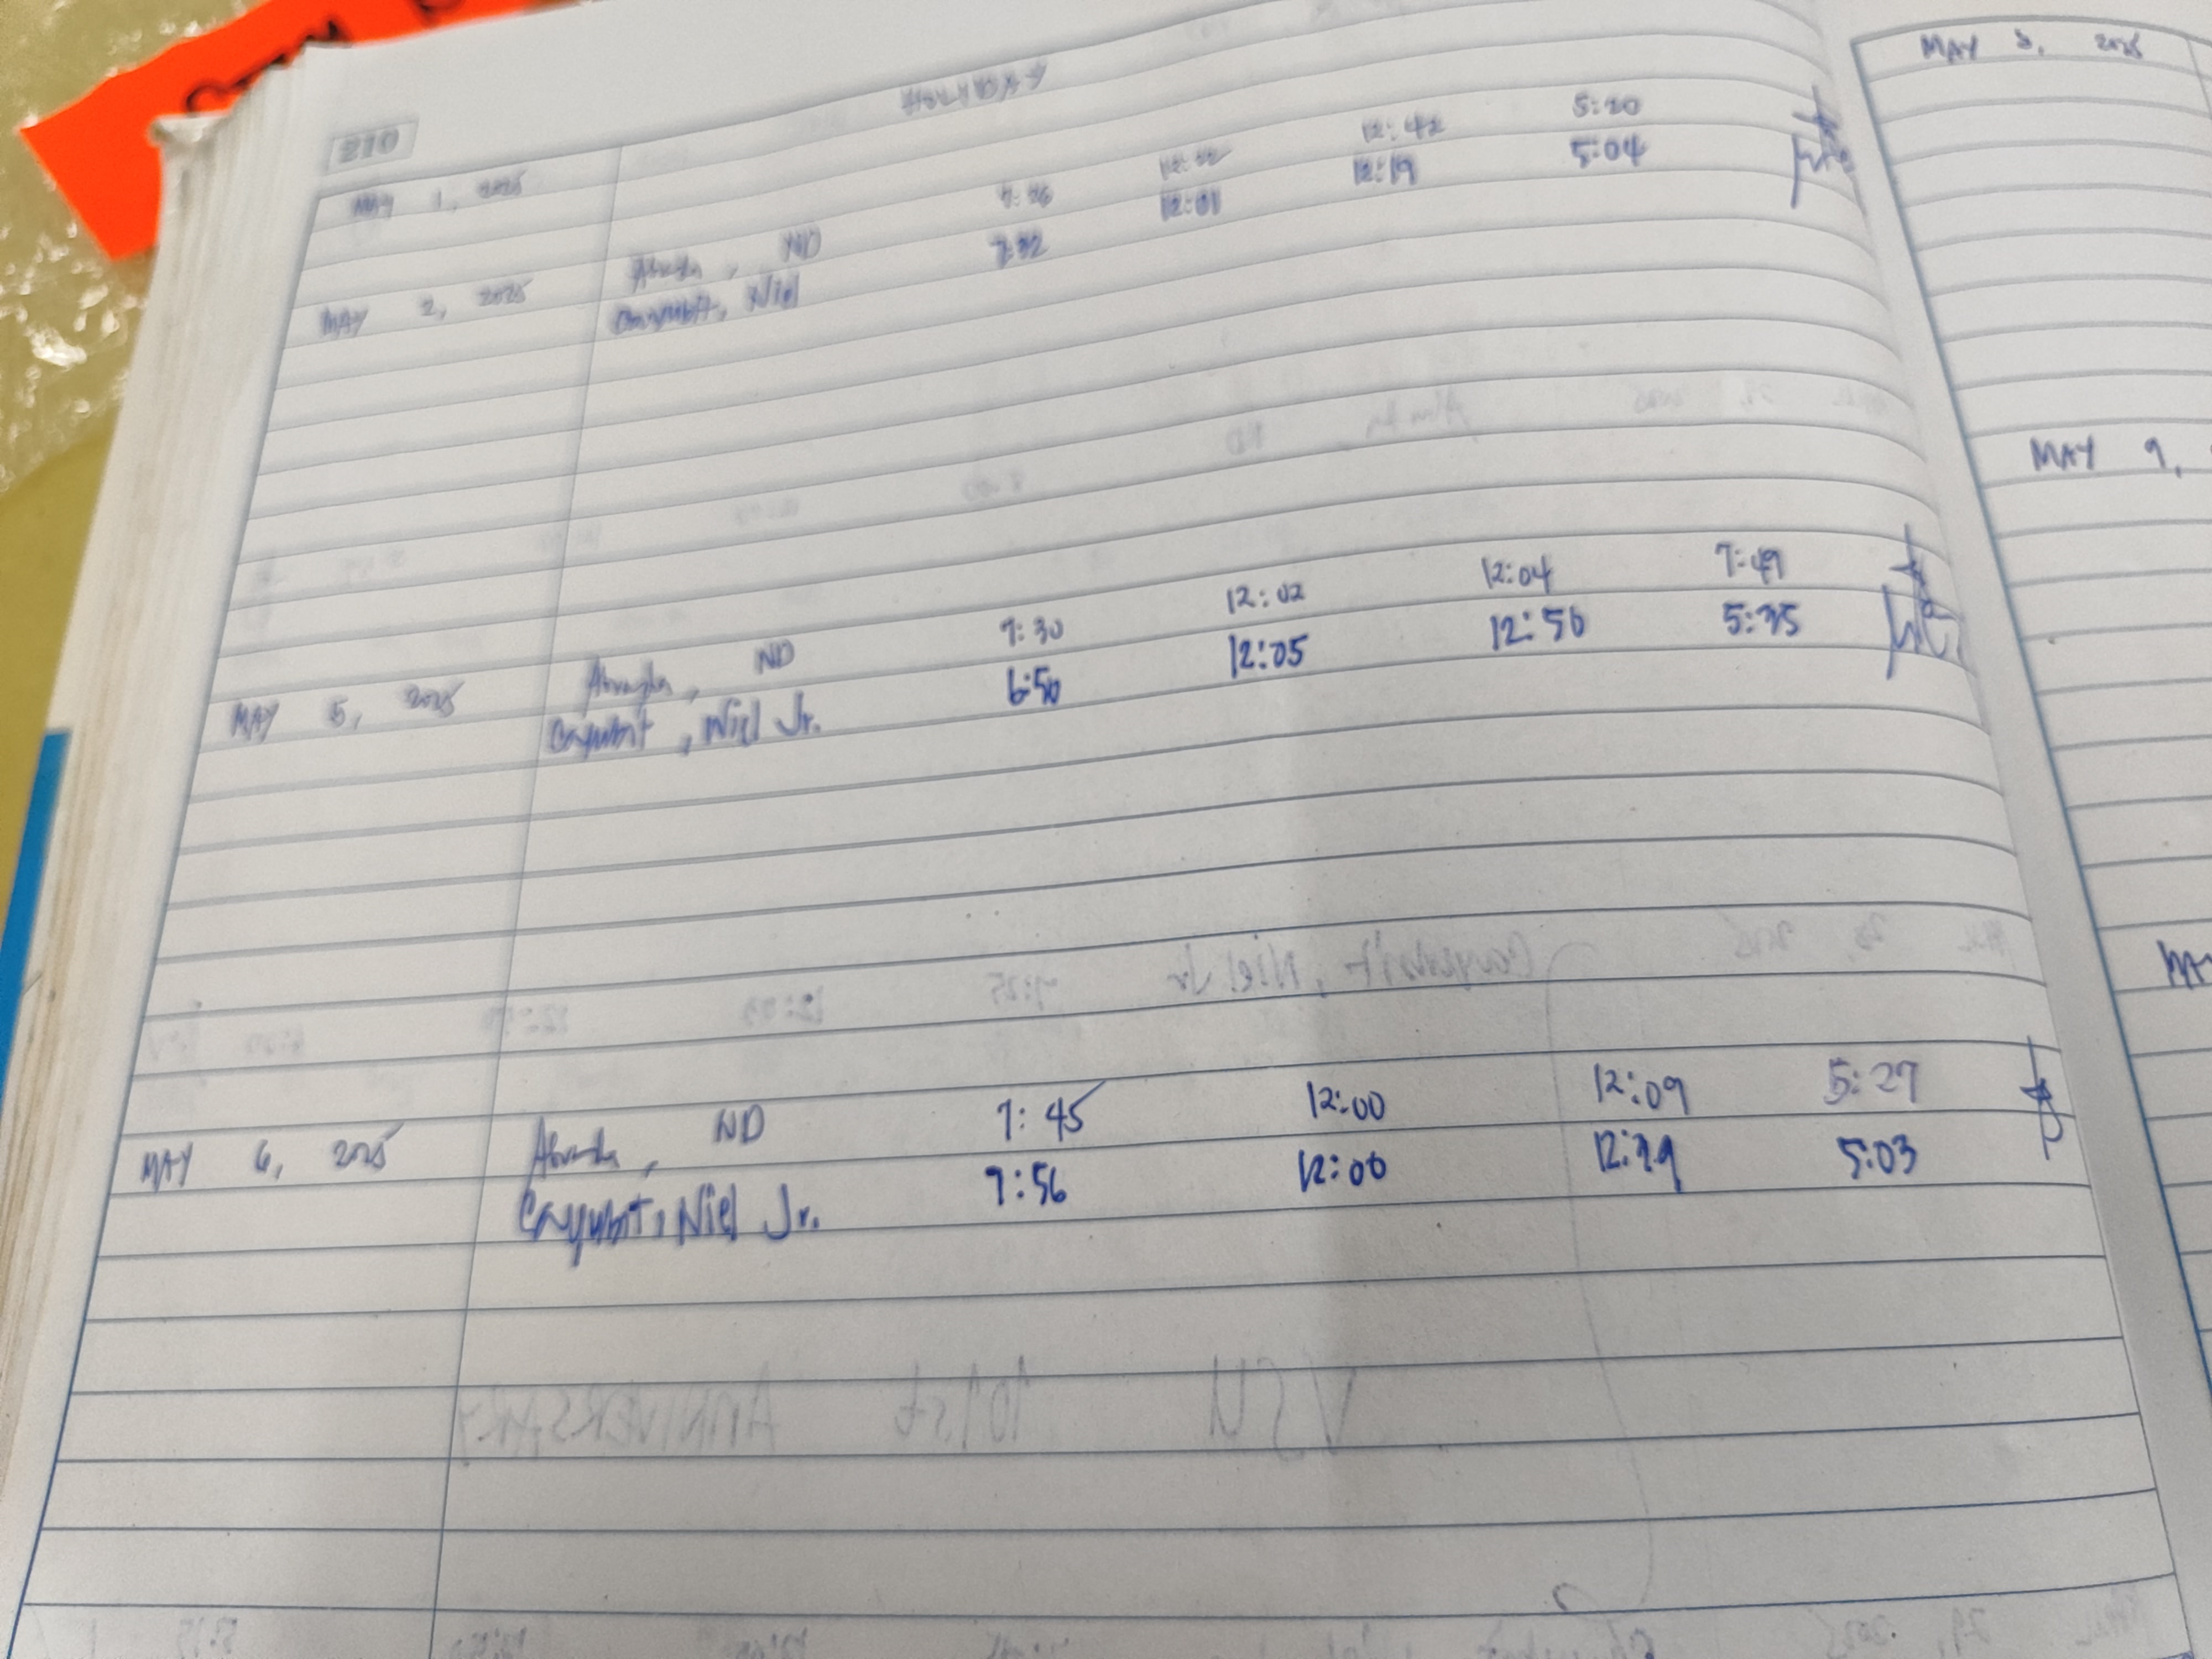 210
MAY 1, 2025
MAY 2, 2025 , ND 7:26 12:42 5:20
Cayubit, Niel 7:32 12:01 12:19 5:04
MAY 5, 2025 , ND 7:30 12:02 12:04 7:49
Cayubit, Niel Jr. 6:50 12:05 12:50 5:35
MAY 6, 2025 , ND 7:45 12:00 12:09 5:27
Cayubit, Niel Jr. 7:56 12:00 5:03
MAY 8, 2025
MAY 9,